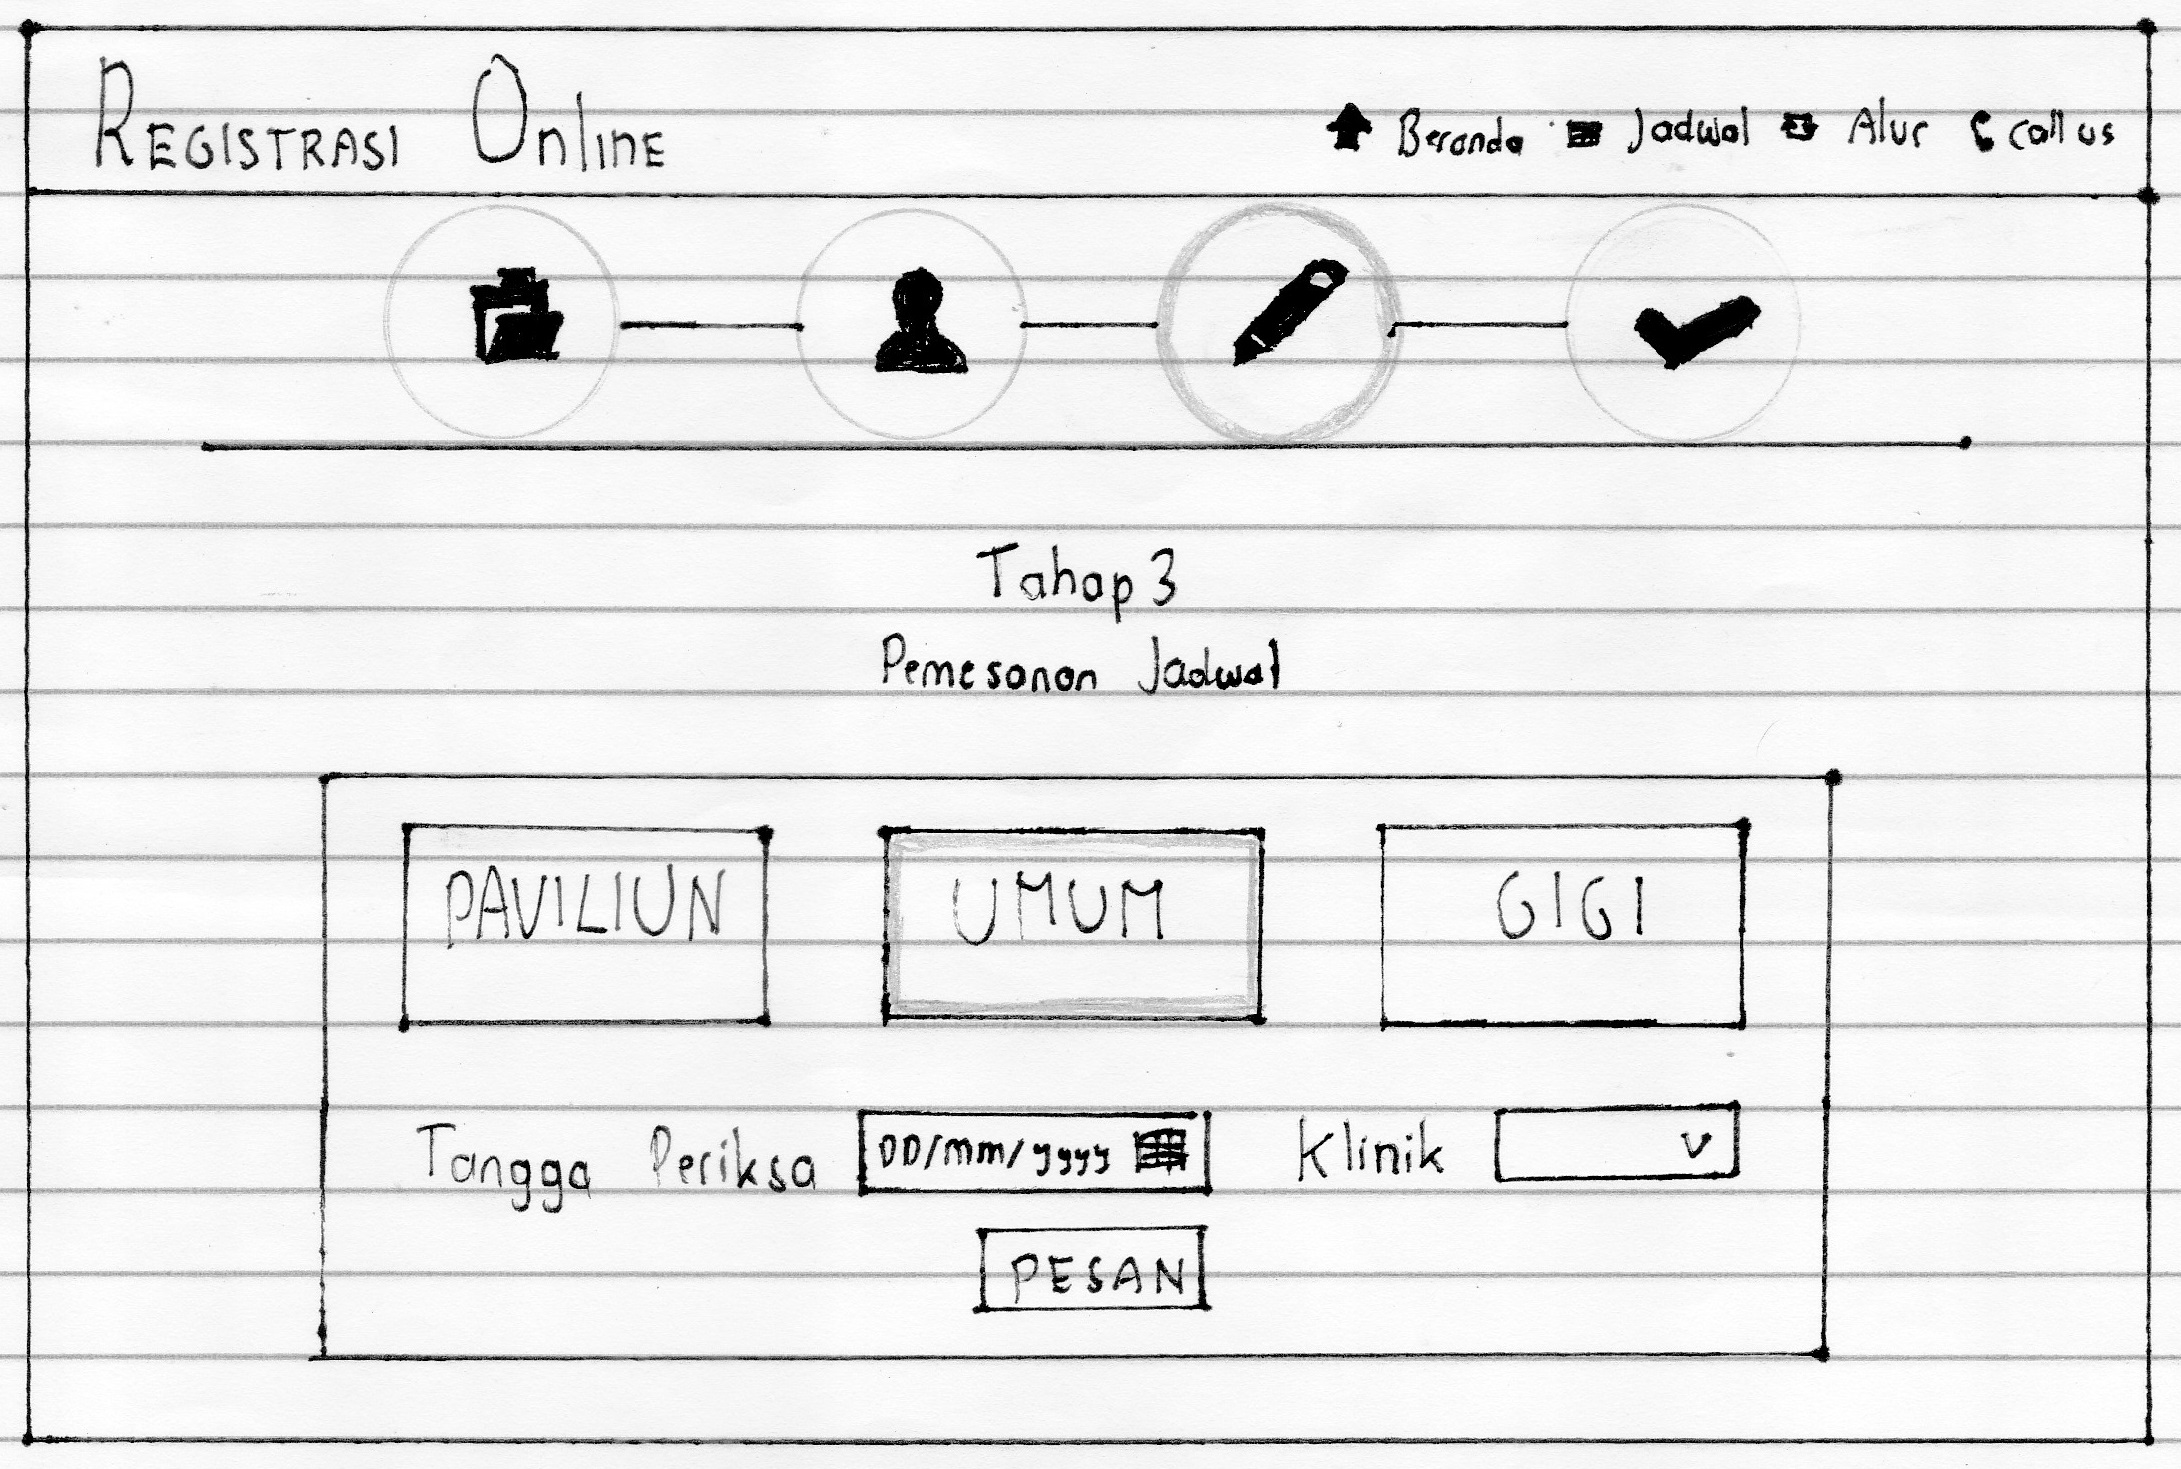 REGISTRASI OnlinE
Beranda Jadwal Alur call us
Tahap 3
Pemesanan Jadwal
PAVILIUN UMUM GIGI
Tangga Periksa DD/mm/yyyy Klinik
PESAN